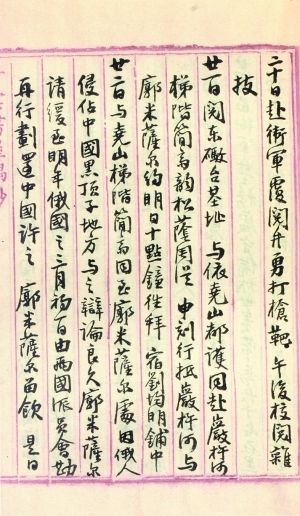 二十日赴衛軍覆閱弁勇打槍靶午後校閱雜
技
廿一日閱东礮台基地 与依堯山都護同赴巖杵河
梯階簡高韵松蔭周 申刻行抵巖杵河与
廓米薩尔約明日十點鐘往拜 宿劉均明鋪中
廿二日与堯山梯階簡高同至廓米薩尔處因俄人
侵佔中國黑頂子地方与之辯論良久廓米薩尔
請緩至明年俄國之三月初一日由兩國派员會勘
再行劃還中國許之 廓米薩尔留飲 是日